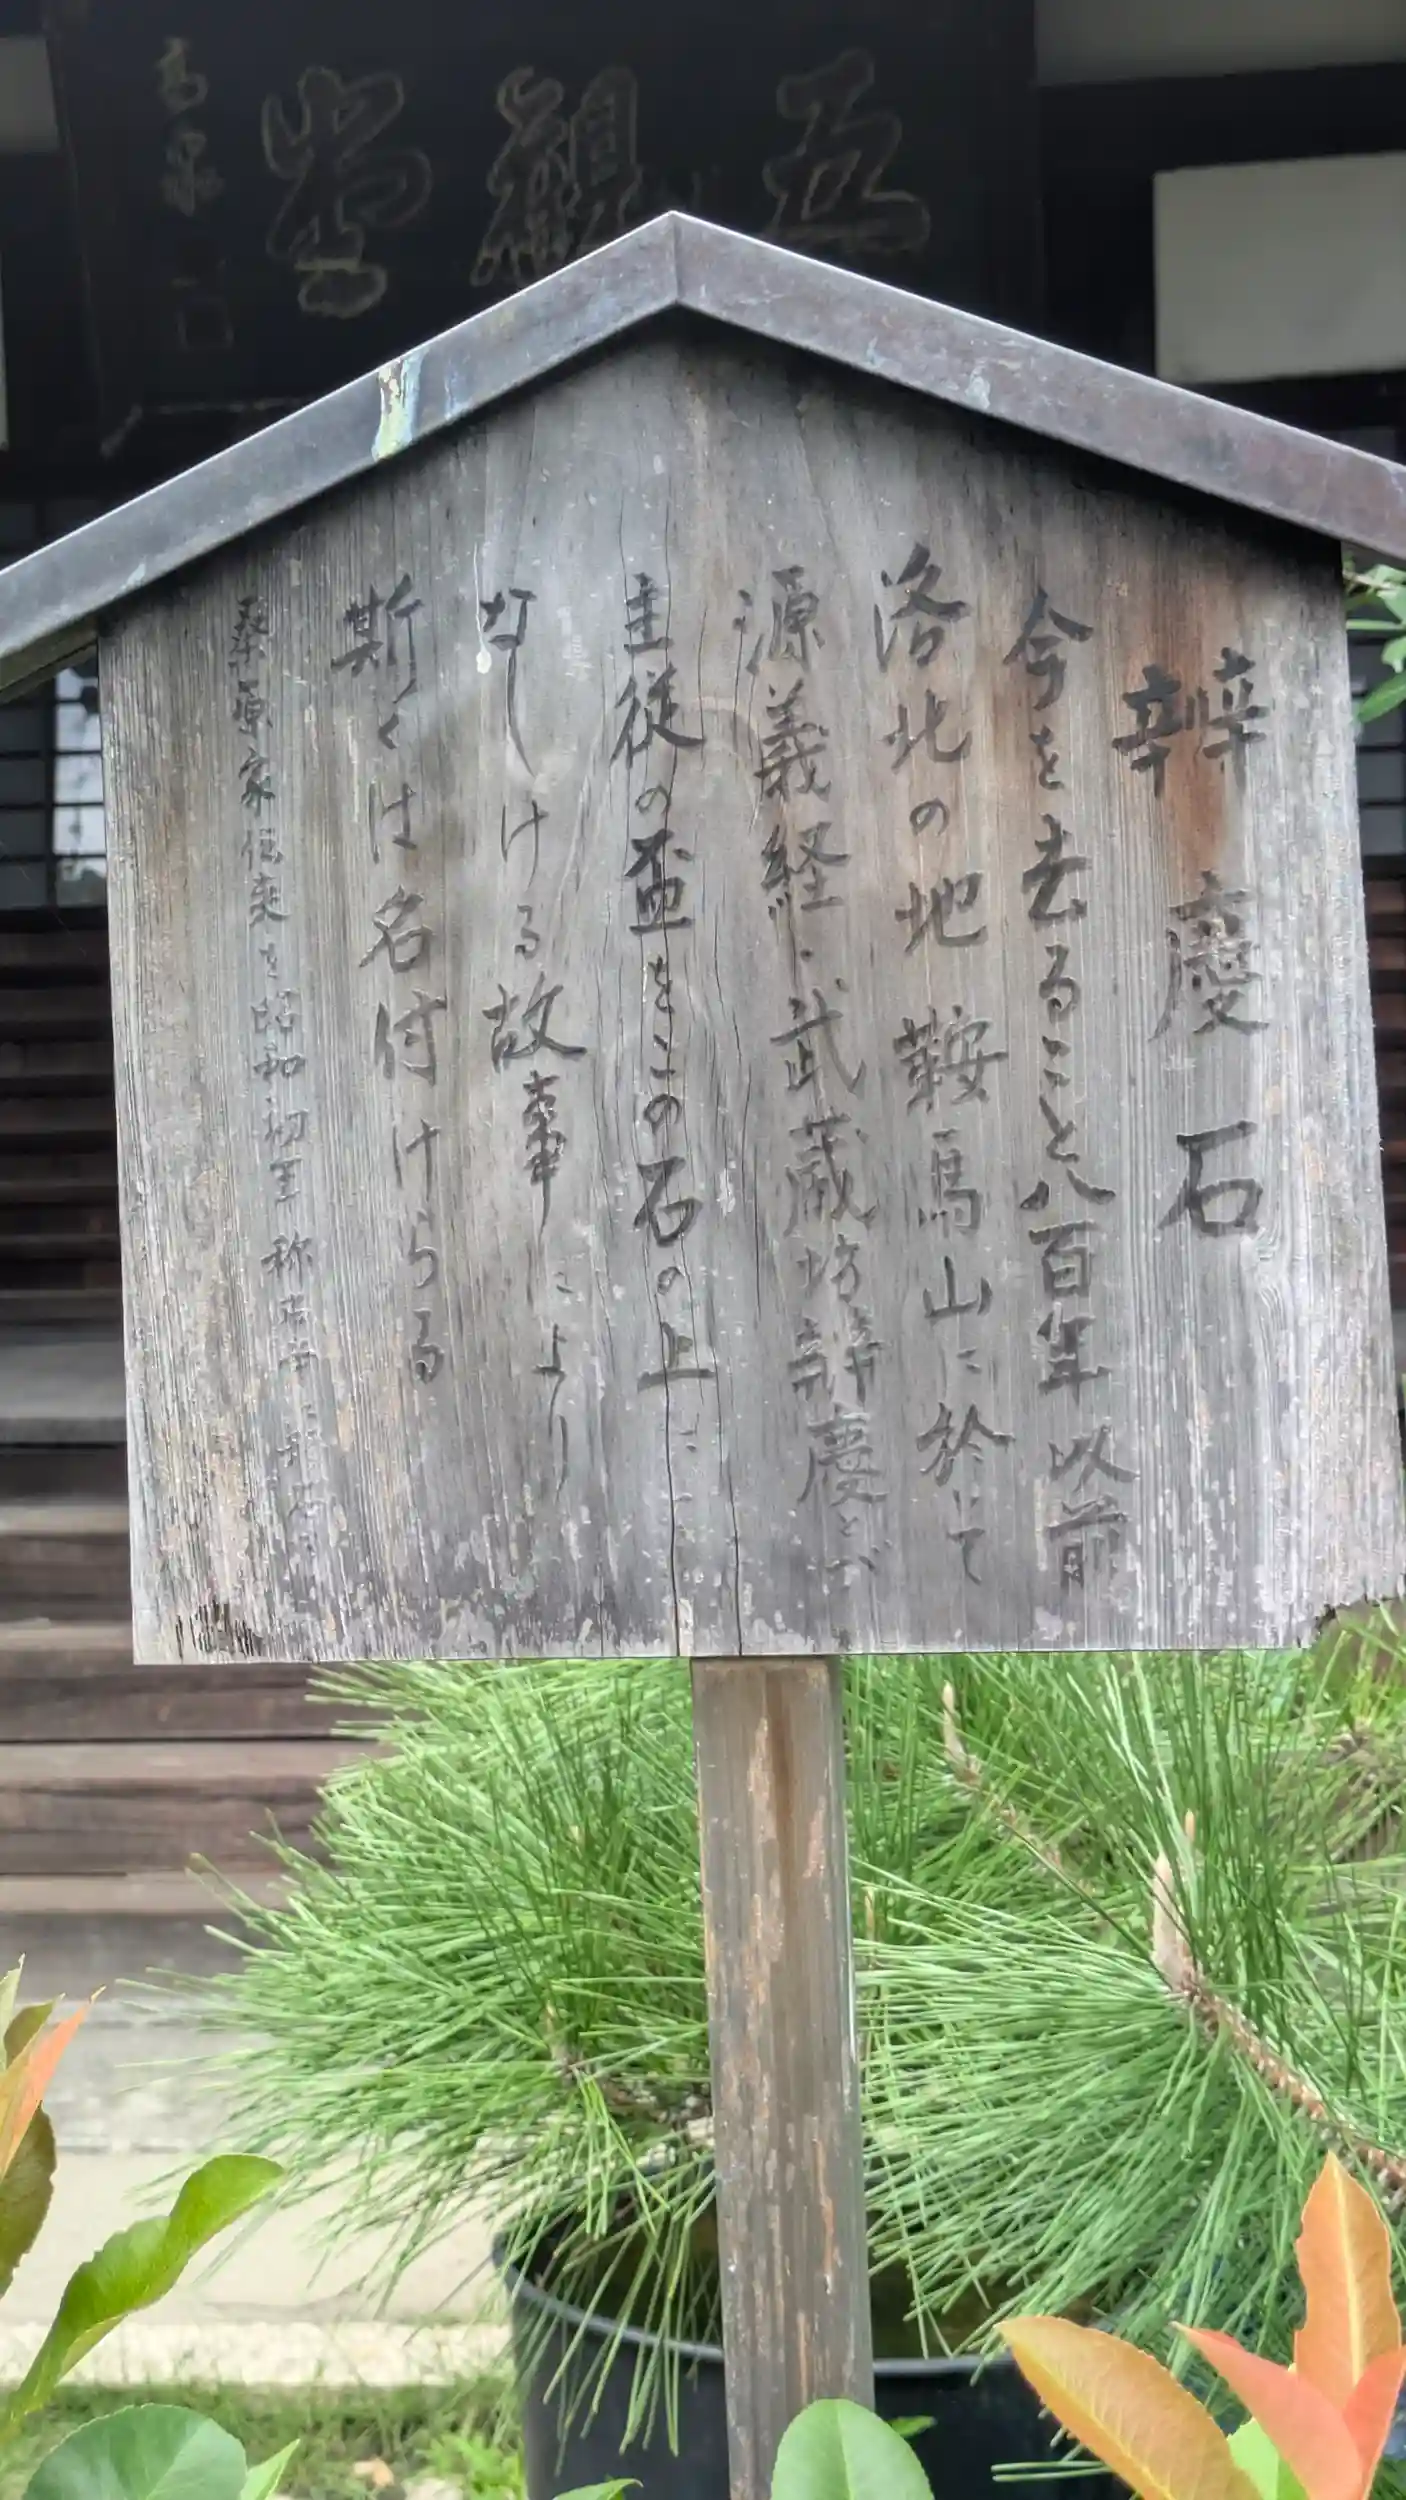 五觀堂
高泉
辨慶石
今を去ること八百年以前
洛北の地鞍馬山に於いて
源義経・武蔵坊辨慶とが
主従の盃をこの石の上に
なしける故事により
斯くは名付けらる
桑原家伝来を昭和初至称名寺に